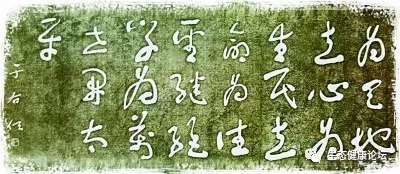 為天地
立心為
生民立
命為往
聖繼絕
學為萬
世開太
平
于右任
生态健康论坛